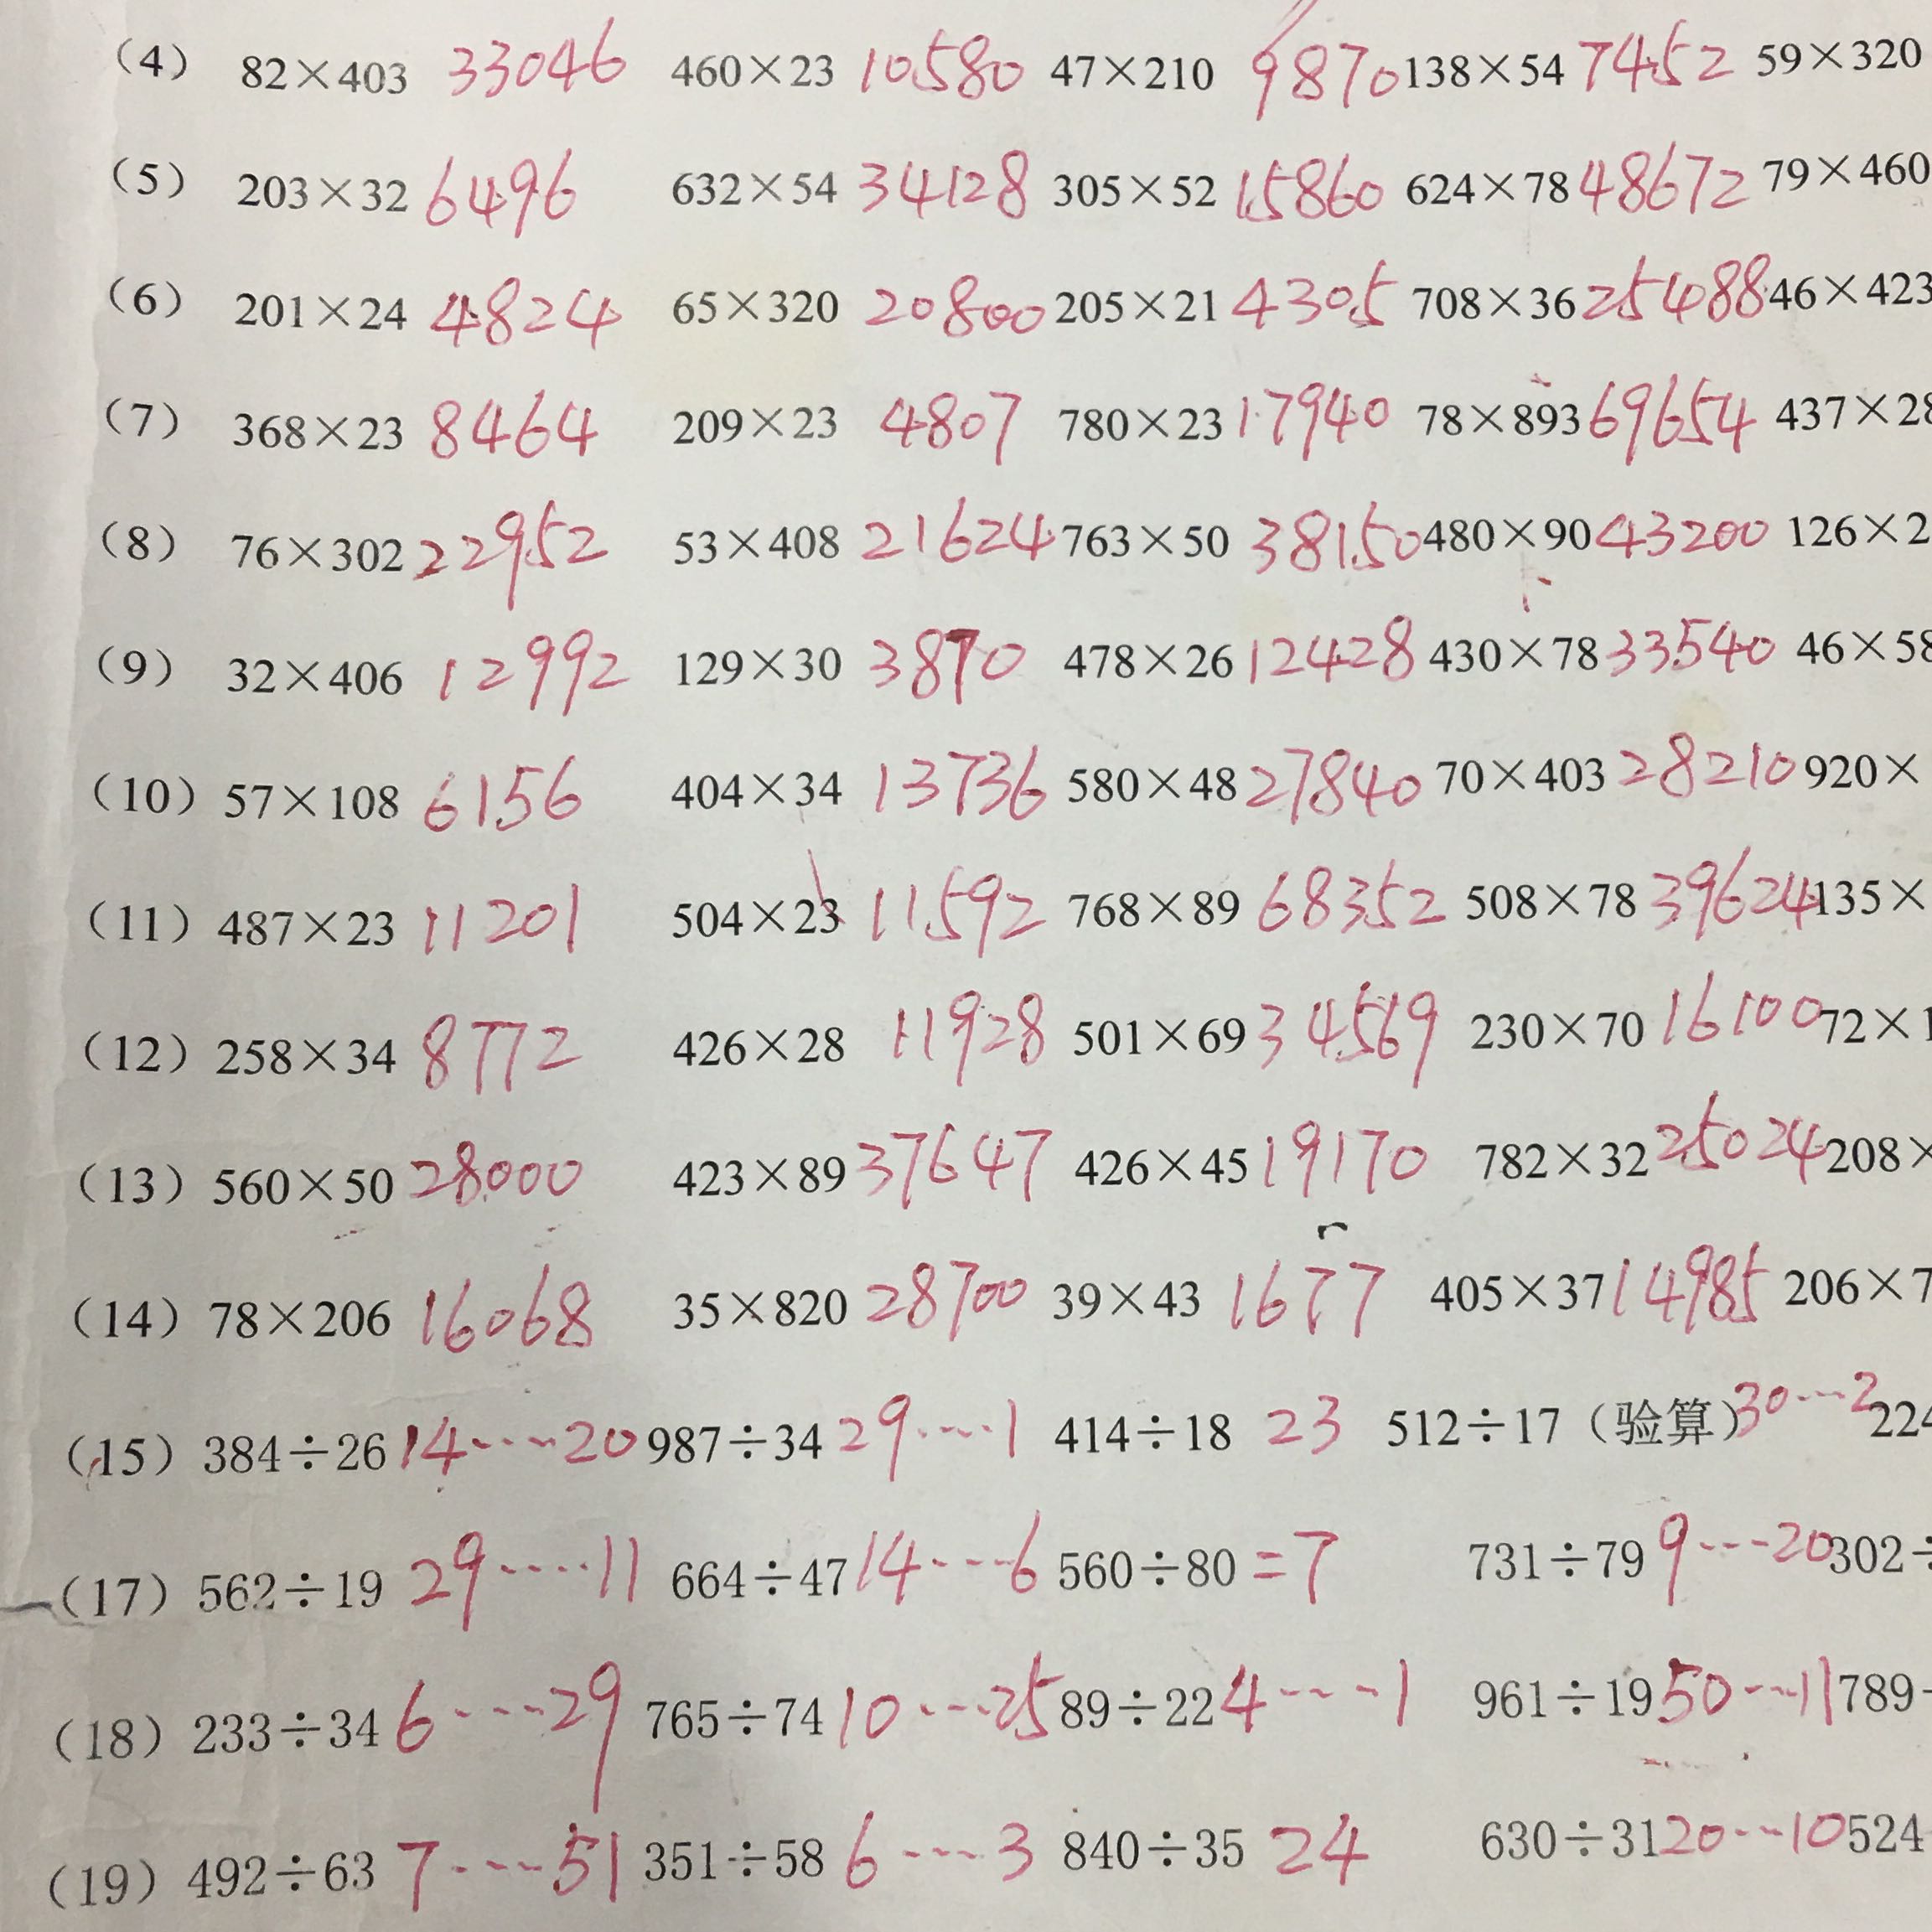 (4) 82×403 33046 460×23 10580 47×210 9870 138×54 7452 59×320
(5) 203×32 6496 632×54 34128 305×52 15860 624×78 48672 79×460
(6) 201×24 4824 65×320 20800 205×21 4305 708×36 25488 46×423
(7) 368×23 8464 209×23 4807 780×23 17940 78×893 69654 437×28
(8) 76×302 22952 53×408 21624 763×50 38150 480×90 43200 126×2
(9) 32×406 12992 129×30 3870 478×26 12428 430×78 33540 46×58
(10) 57×108 6156 404×34 13736 580×48 27840 70×403 28210 920×
(11) 487×23 11201 504×23 11592 768×89 68352 508×78 39624 135×
(12) 258×34 8772 426×28 11928 501×69 34569 230×70 16100 72×1
(13) 560×50 28000 423×89 37647 426×45 19170 782×32 25024 208×
(14) 78×206 16068 35×820 28700 39×43 1677 405×37 14985 206×7
(15) 384÷26 14····20 987÷34 29····1 414÷18 23 512÷17（验算）30···2 224
(17) 562÷19 29·····11 664÷47 14····6 560÷80 =7 731÷79 9···20 302÷
(18) 233÷34 6····29 765÷74 10···25 89÷22 4····1 961÷19 50···11 789
(19) 492÷63 7····51 351÷58 6····3 840÷35 24 630÷31 20···10 524